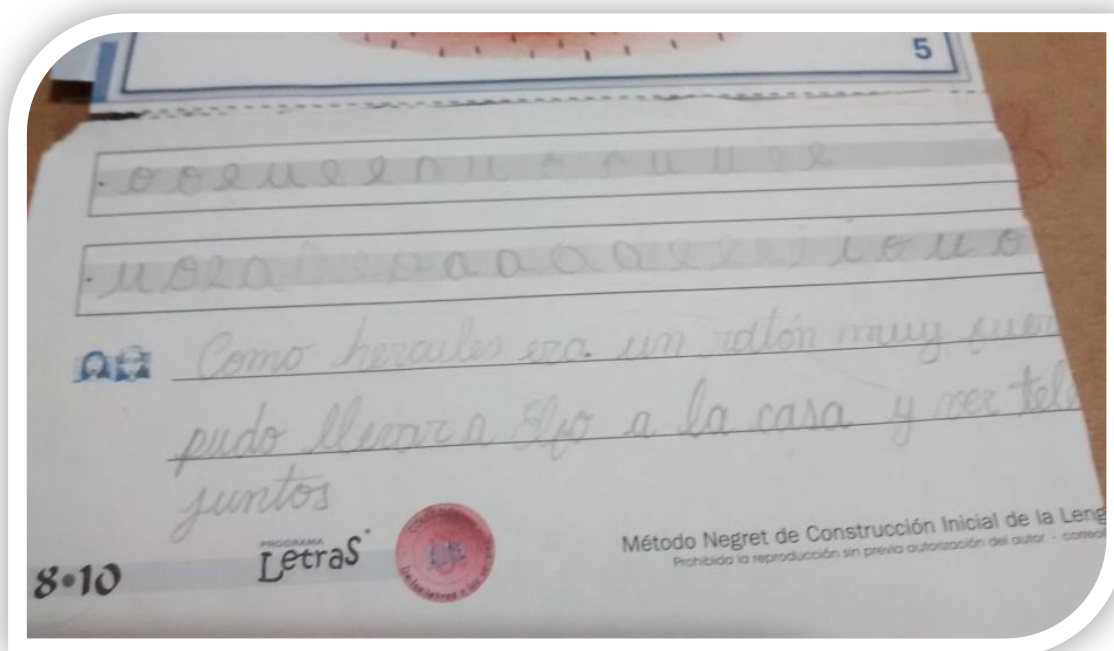 5
o o e u e e n u o n u u o e
u o e a a a a a i i o u o
Como hercules era un ratón muy
pudo llevar a a la casa y ver
juntos
8•10
PROGRAMA
LetraS
Método Negret de Construcción Inicial de la
Prohibida la reproducción sin previa autorización del autor -